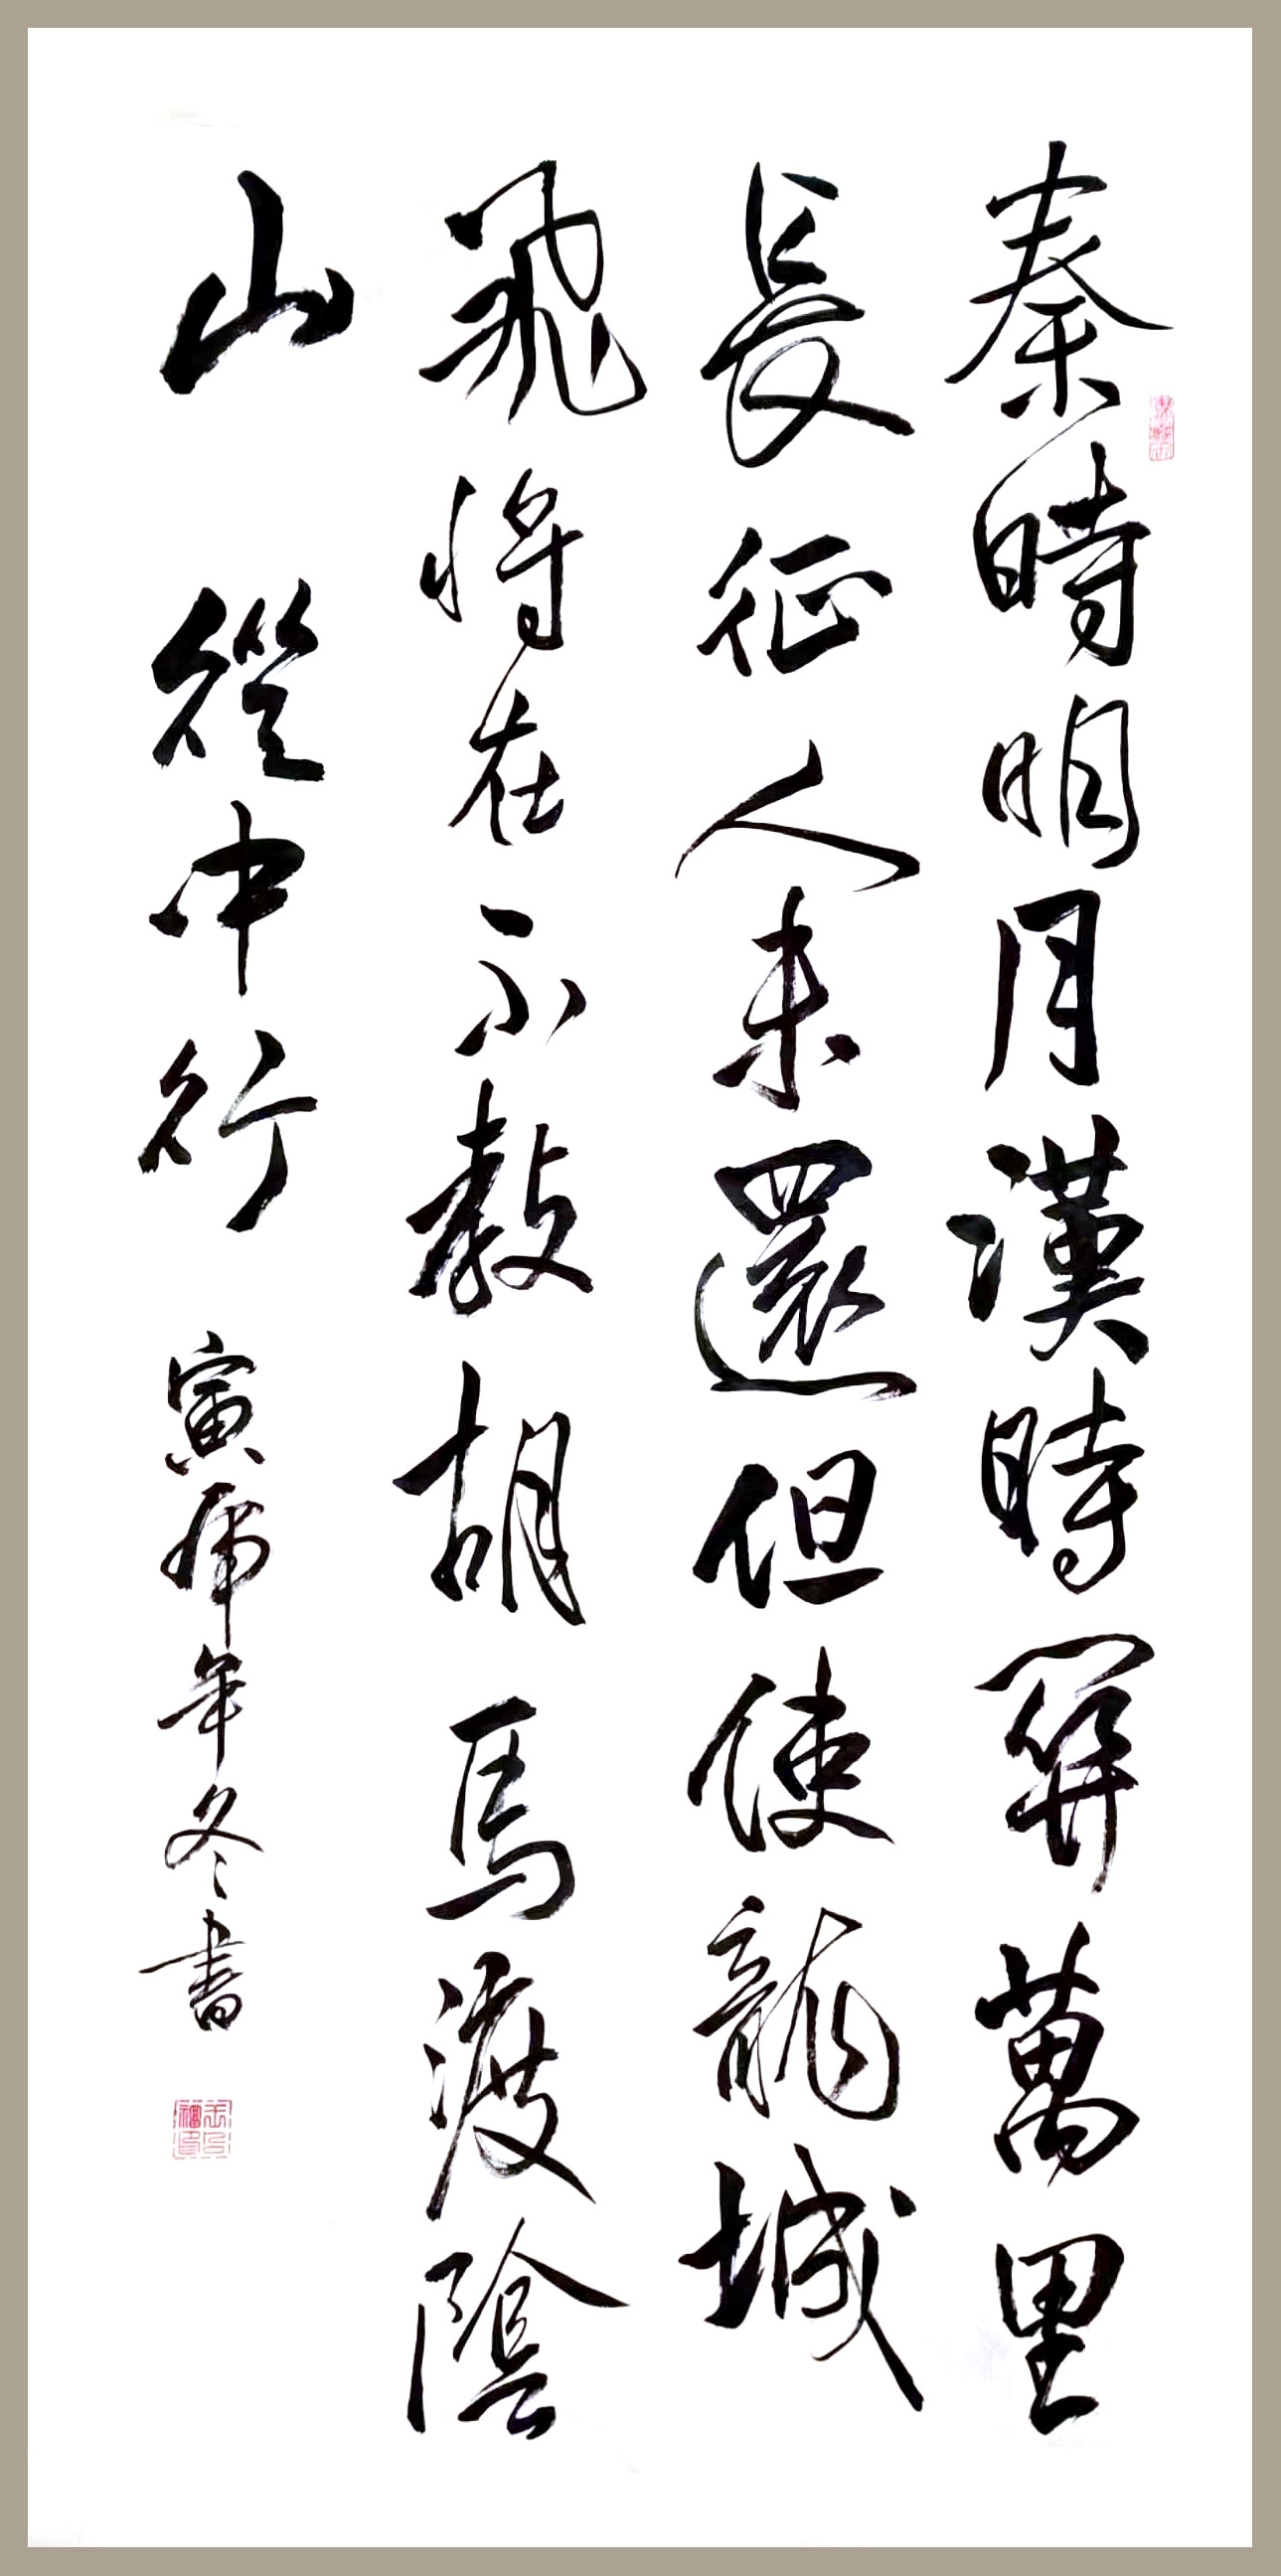 秦時明月漢時關萬里
長征人未還但使龍城
飛將在不教胡馬渡陰
山 從軍行 寅虎年冬書